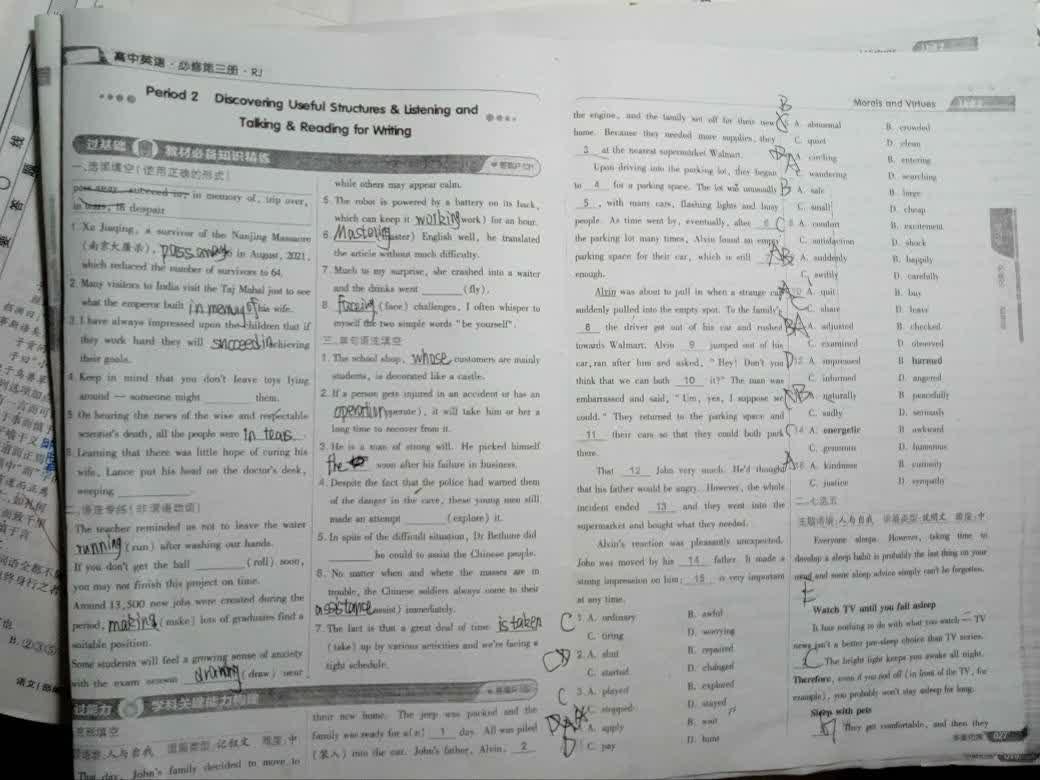 高中英语·必修第三册·RJ
Period 2 Discovering Useful Structures & Listening and
Talking & Reading for Writing
过基础 教材必备知识精练
一、选落填空(使用正确的形式)
pass away, succeed in, in memory of, trip over,
in tears, in despair
1. Xu Jiaqing, a survivor of the Nanjing Massacre
(南京大屠杀), pass away in August, 2021,
which reduced the number of survivors to 64.
2. Many visitors to India visit the Taj Mahal just to see
what the emperor built in memory of his wife.
3. I have always impressed upon the children that if
they work hard they will succeed in achieving
their goals.
4. Keep in mind that you don't leave toys lying
around — someone might ____ them.
5. On hearing the news of the wise and respectable
scientist's death, all the people were in tears.
6. Learning that there was little hope of curing his
wife, Lance put his head on the doctor's desk,
weeping ____
The teacher reminded us not to leave the water
running (run) after washing our hands.
If you don't get the ball ____ (roll) soon,
you may not finish this project on time.
Around 13,500 new jobs were created during the
period, making (make) lots of graduates find a
suitable position.
Some students will feel a growing sense of anxiety
with the exam season drawing (draw) near
while others may appear calm.
5. The robot is powered by a battery on its back,
which can keep it working (work) for an hour.
6. Mastering (master) English well, he translated
the article without much difficulty.
7. Much to my surprise, she crashed into a waiter
and the drinks went ____ (fly).
8. facing (face) challenges, I often whisper to
myself the two simple words "be yourself".
三、单句语法填空
1. The school shop, whose customers are mainly
students, is decorated like a castle.
2. If a person gets injured in an accident or has an
operation (operate), it will take him or her a
long time to recover from it.
3. He is a man of strong will. He picked himself
the soon after his failure in business.
4. Despite the fact that the police had warned them
of the danger in the cave, these young men still
made an attempt ____ (explore) it.
5. In spite of the difficult situation, Dr Bethune did
____ he could to assist the Chinese people.
6. No matter when or where the masses are in
trouble, the Chinese soldiers always come to their
assistance (assist) immediately.
7. The fact is that a great deal of time is taken
(take) up by various activities and we're facing a
tight schedule.
过能力 学科关键能力构建
完形填空
主题语境:人与自我 语篇类型:记叙文 难度:中
That day, John's family decided to move to
their new home. The jeep was packed and the
family was ready for a(n) 1 day. All was piled
(装入) into the car. John's father, Alvin, 2
Morals and Virtues
the engine, and the family set off for their new
home. Because they needed more supplies, they
3 at the nearest supermarket Walmart.
Upon driving into the parking lot, they began
to 4 for a parking space. The lot was unusually
5, with many cars, flashing lights and busy
people. As time went by, eventually, after 6
the parking lot many times, Alvin found an empty
parking space for their car, which is still 7
enough.
Alvin was about to pull in when a strange car
suddenly pulled into the empty spot. To the family's
8 the driver got out of his car and rushed
towards Walmart. Alvin 9 jumped out of his
car, ran after him and asked, "Hey! Don't you
think that we can both 10 it?" The man was
embarrassed and said, "Um, yes, I suppose we
could." They returned to the parking space and
11 their cars so that they could both park
there.
That 12 John very much. He'd thought
that his father would be angry. However, the whole
incident ended 13 and they went into the
supermarket and bought what they needed.
Alvin's reaction was pleasantly unexpected.
John was moved by his 14 father. It made a
strong impression on him: 15 is very important
at any time.
C 1. A. ordinary B. awful
C. tiring D. worrying
2. A. shut B. repaired
C. started D. changed
C 3. A. played B. explored
C. stopped D. stayed
A. apply B. wait
C. pay D. hunt
A. abnormal B. crowded
C. quiet D. clean
A. circling B. entering
C. wandering D. searching
A. safe B. large
C. small D. cheap
A. comfort B. excitement
C. satisfaction D. shock
A. suddenly B. happily
C. swiftly D. carefully
A. quit B. buy
C. share D. leave
A. adjusted B. checked
C. examined D. observed
12. A. impressed B. harmed
C. informed D. angered
A. naturally B. peacefully
C. sadly D. seriously
14 A. energetic B. awkward
C. generous D. humorous
A. kindness B. curiosity
C. justice D. sympathy
二、七选五
主题语境:人与自我 语篇类型:说明文 难度:中
Everyone sleeps. However, taking time to
develop a sleep habit is probably the last thing on your
mind and some sleep advice simply can't be forgotten.
E
Watch TV until you fall asleep
It has nothing to do with what you watch — TV
news isn't a better pre-sleep choice than TV series.
C The bright light keeps you awake all night.
Therefore, even if you nod off (in front of the TV, for
example), you probably won't stay asleep for long.
Sleep with pets
They get comfortable, and then they
027